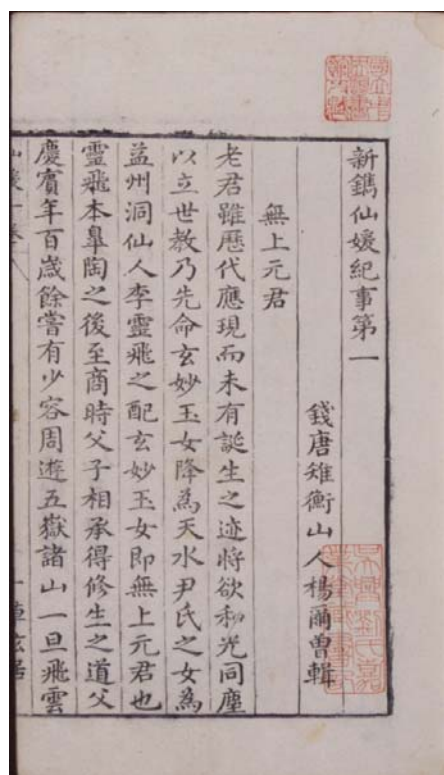 新鐫仙媛紀事第一
錢唐雉衡山人楊爾曾輯
無上元君
老君雖歷代應現而未有誕生之迹將欲和光同塵
以立世教乃先命玄妙玉女降為天水尹氏之女為
益州洞仙人李靈飛之配玄妙玉女即無上元君也
靈飛本臯陶之後至商時父子相承得修生之道父
慶賓年百歲餘嘗有少容周遊五嶽諸山一旦飛雲
吳興劉氏嘉
業堂藏書印